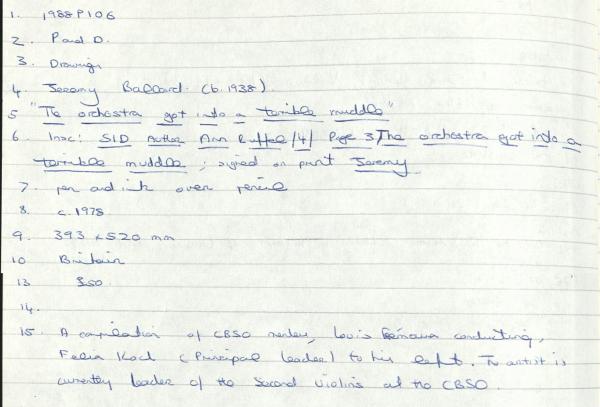 1. 1988P106
2. P and D.
3. Drawings
4. Jeremy Ballard. (b. 1938).
5 "The orchestra got into a terrible muddle"
6 Insc: SID Author Ann Ruffel /4/ Page 3/The orchestra got into a
terrible muddle ; signed on print Jeremy
7. pen and ink over pencil
8. c. 1978
9. 393 x 520 mm
10 Britain
13 £50.
14.
15. A compilation of CBSO members, Louis Frémaux conducting,
Felix Kock (Principal leader) to his left. The artist is
currently leader of the second violins at the CBSO.